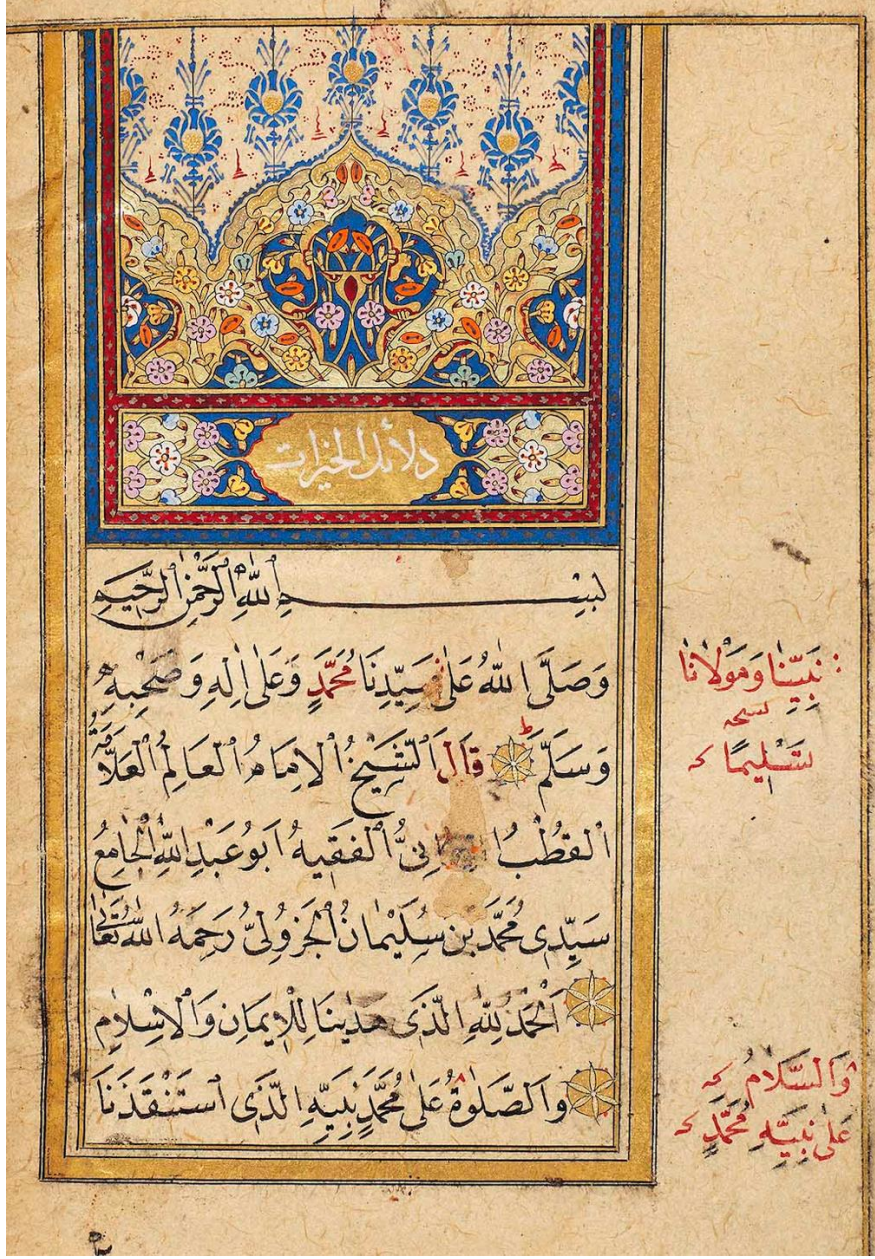 دلائل الخيرات
بِسْــــــمِ ٱللّٰهِ ٱلرَّحْمٰنِ ٱلرَّحِيمِ
وَصَلَّى اللّٰهُ عَلٰى سَيِّدِنَا مُحَمَّدٍ وَعَلٰى اٰلِهٖ وَصَحْبِهٖ
وَسَلَّمَ قَالَ ٱلشَّيْخُ ٱلْاِمَامُ ٱلْعَالِمُ ٱلْعَلَّامَةُ
ٱلْقُطْبُ ٱلْفَقِيهُ اَبُو عَبْدِ اللّٰهِ ٱلْجَامِعُ
سَيِّدِى مُحَمَّدُ بْنُ سُلَيْمٰانَ ٱلْجَزُولِىُّ رَحِمَهُ اللّٰهُ تَعَالٰى
اَلْحَمْدُ لِلّٰهِ الَّذٖى هَدٰينَا لِلْاٖيمَانِ وَٱلْاِسْلَامِ
وَٱلصَّلٰوةُ عَلٰى مُحَمَّدٍ نَبِيِّهِ الَّذٖى ٱسْتَنْقَذَنَا
نَبِيِّنَا وَمَوْلَانَا
نسخه
تَسْلِيمًا
وَالسَّلَامُ
عَلٰى نَبِيِّهٖ مُحَمَّدٍ